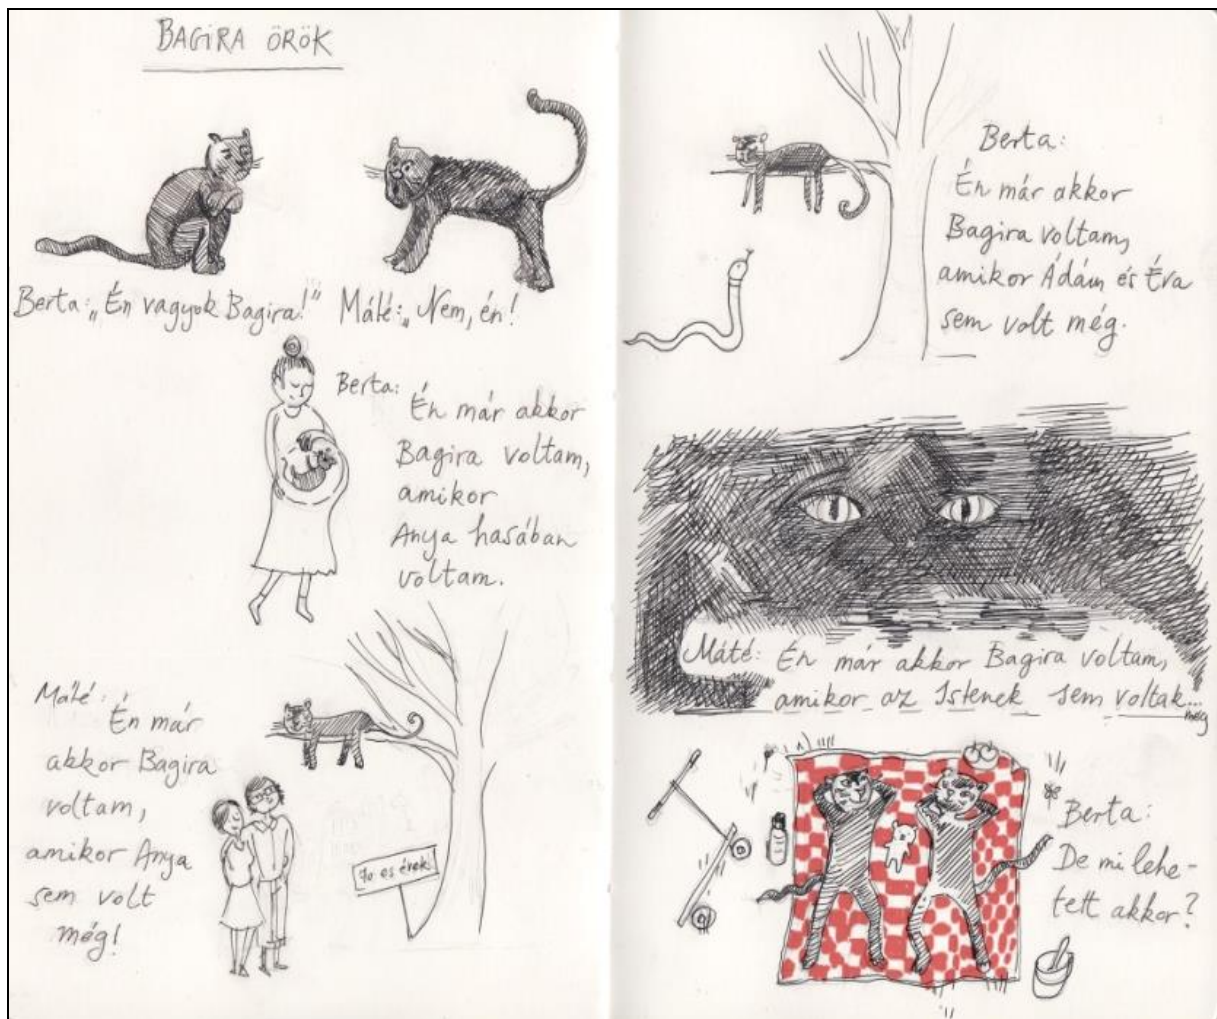 BAGIRA ÖRÖK
Berta: „Én vagyok Bagira!"
Máté: „Nem, én!
Berta:
Én már akkor
Bagira voltam,
amikor
Anya hasában
voltam.
Máté:
Én már
akkor Bagira
voltam,
amikor Anya
sem volt
még!
Berta:
Én már akkor
Bagira voltam,
amikor Ádám és Éva
sem volt még.
Máté: Én már akkor Bagira voltam,
amikor az Istenek sem voltak...
még
Berta:
De mi lehe-
tett akkor?